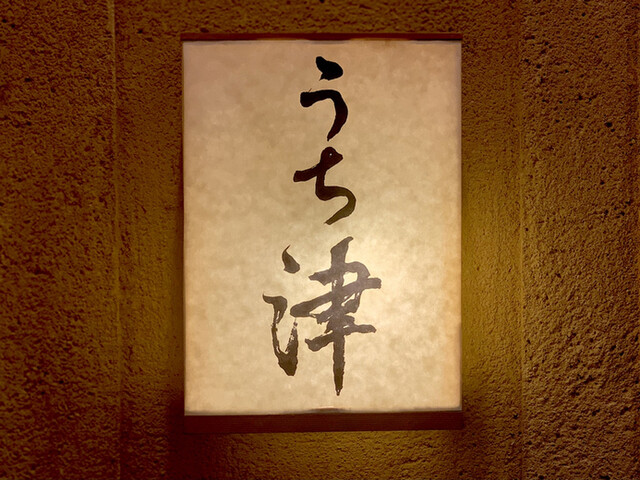 うち津